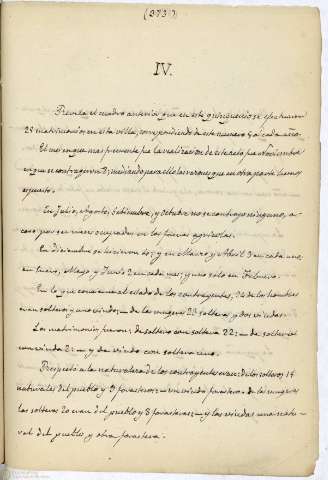 (373)
IV.
Revela el cuadro anterior que en este quinquenio se efectuaron
25 matrimonios en esta villa, correspondiendo de este número 5 a cada año.
El mes en que mas presente fue la realizacion de este acto fue Noviembre
el que se contrageron mediando para ello las razones que en otra parte hemos
espuesto.
En Julio, Agosto, Setiembre, y Octubre no se contrajo ninguno, a-
caso por ser meses ocupados en las faenas agricolas.
En Diciembre se hicieron y en Marzo y Abril 3 en cada uno,
en Enero, Mayo y Junio 2 en cada mes, y uno solo en Febrero.
En lo que concierne al estado de los contrayentes, 24 de los hombres
eran solteros y uno viudo; — de las mugeres 23 solteras y dos viudas.
Los matrimonios fueron; de soltero con soltera 22; — de soltero
con viuda 2; — y de viudo con soltera uno.
Respecto a la naturaleza de los contrayentes eran: de los solteros 14
naturales del pueblo y forasteros; — un viudo forastero. De las mugeres
las solteras 20 eran del pueblo y 3 forasteras; — y las viudas una natu-
ral del pueblo y otra forastera.